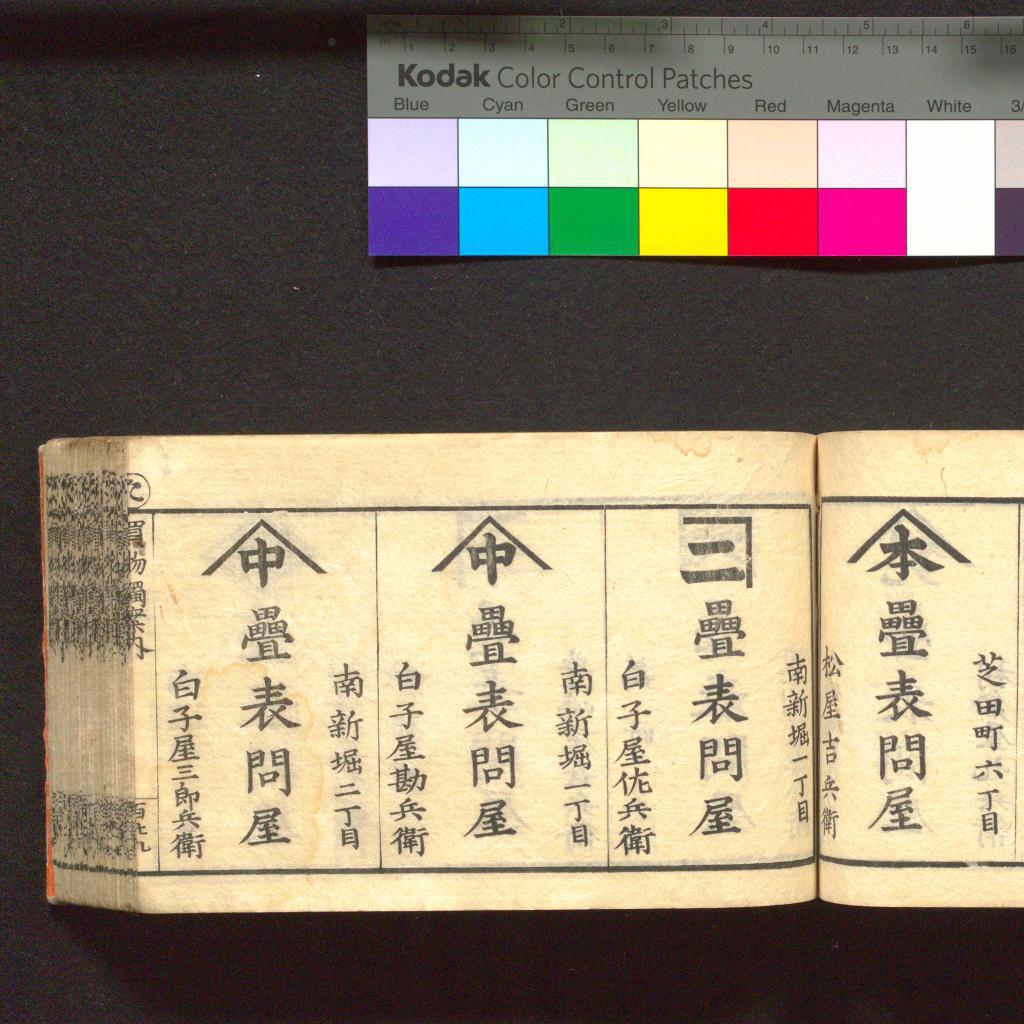 Kodak Color Control Patches
Blue Cyan Green Yellow Red Magenta White 3/
cm 1 2 3 4 5 6 7 8 9 10 11 12 13 14 15 16
2 3 4 5 6
芝田町六丁目
本
疊表問屋
松屋吉兵衛
南新堀一丁目
二
疊表問屋
白子屋佐兵衛
南新堀一丁目
中
疊表問屋
白子屋勘兵衛
南新堀二丁目
中
疊表問屋
白子屋三郎兵衛
た
買物獨案内